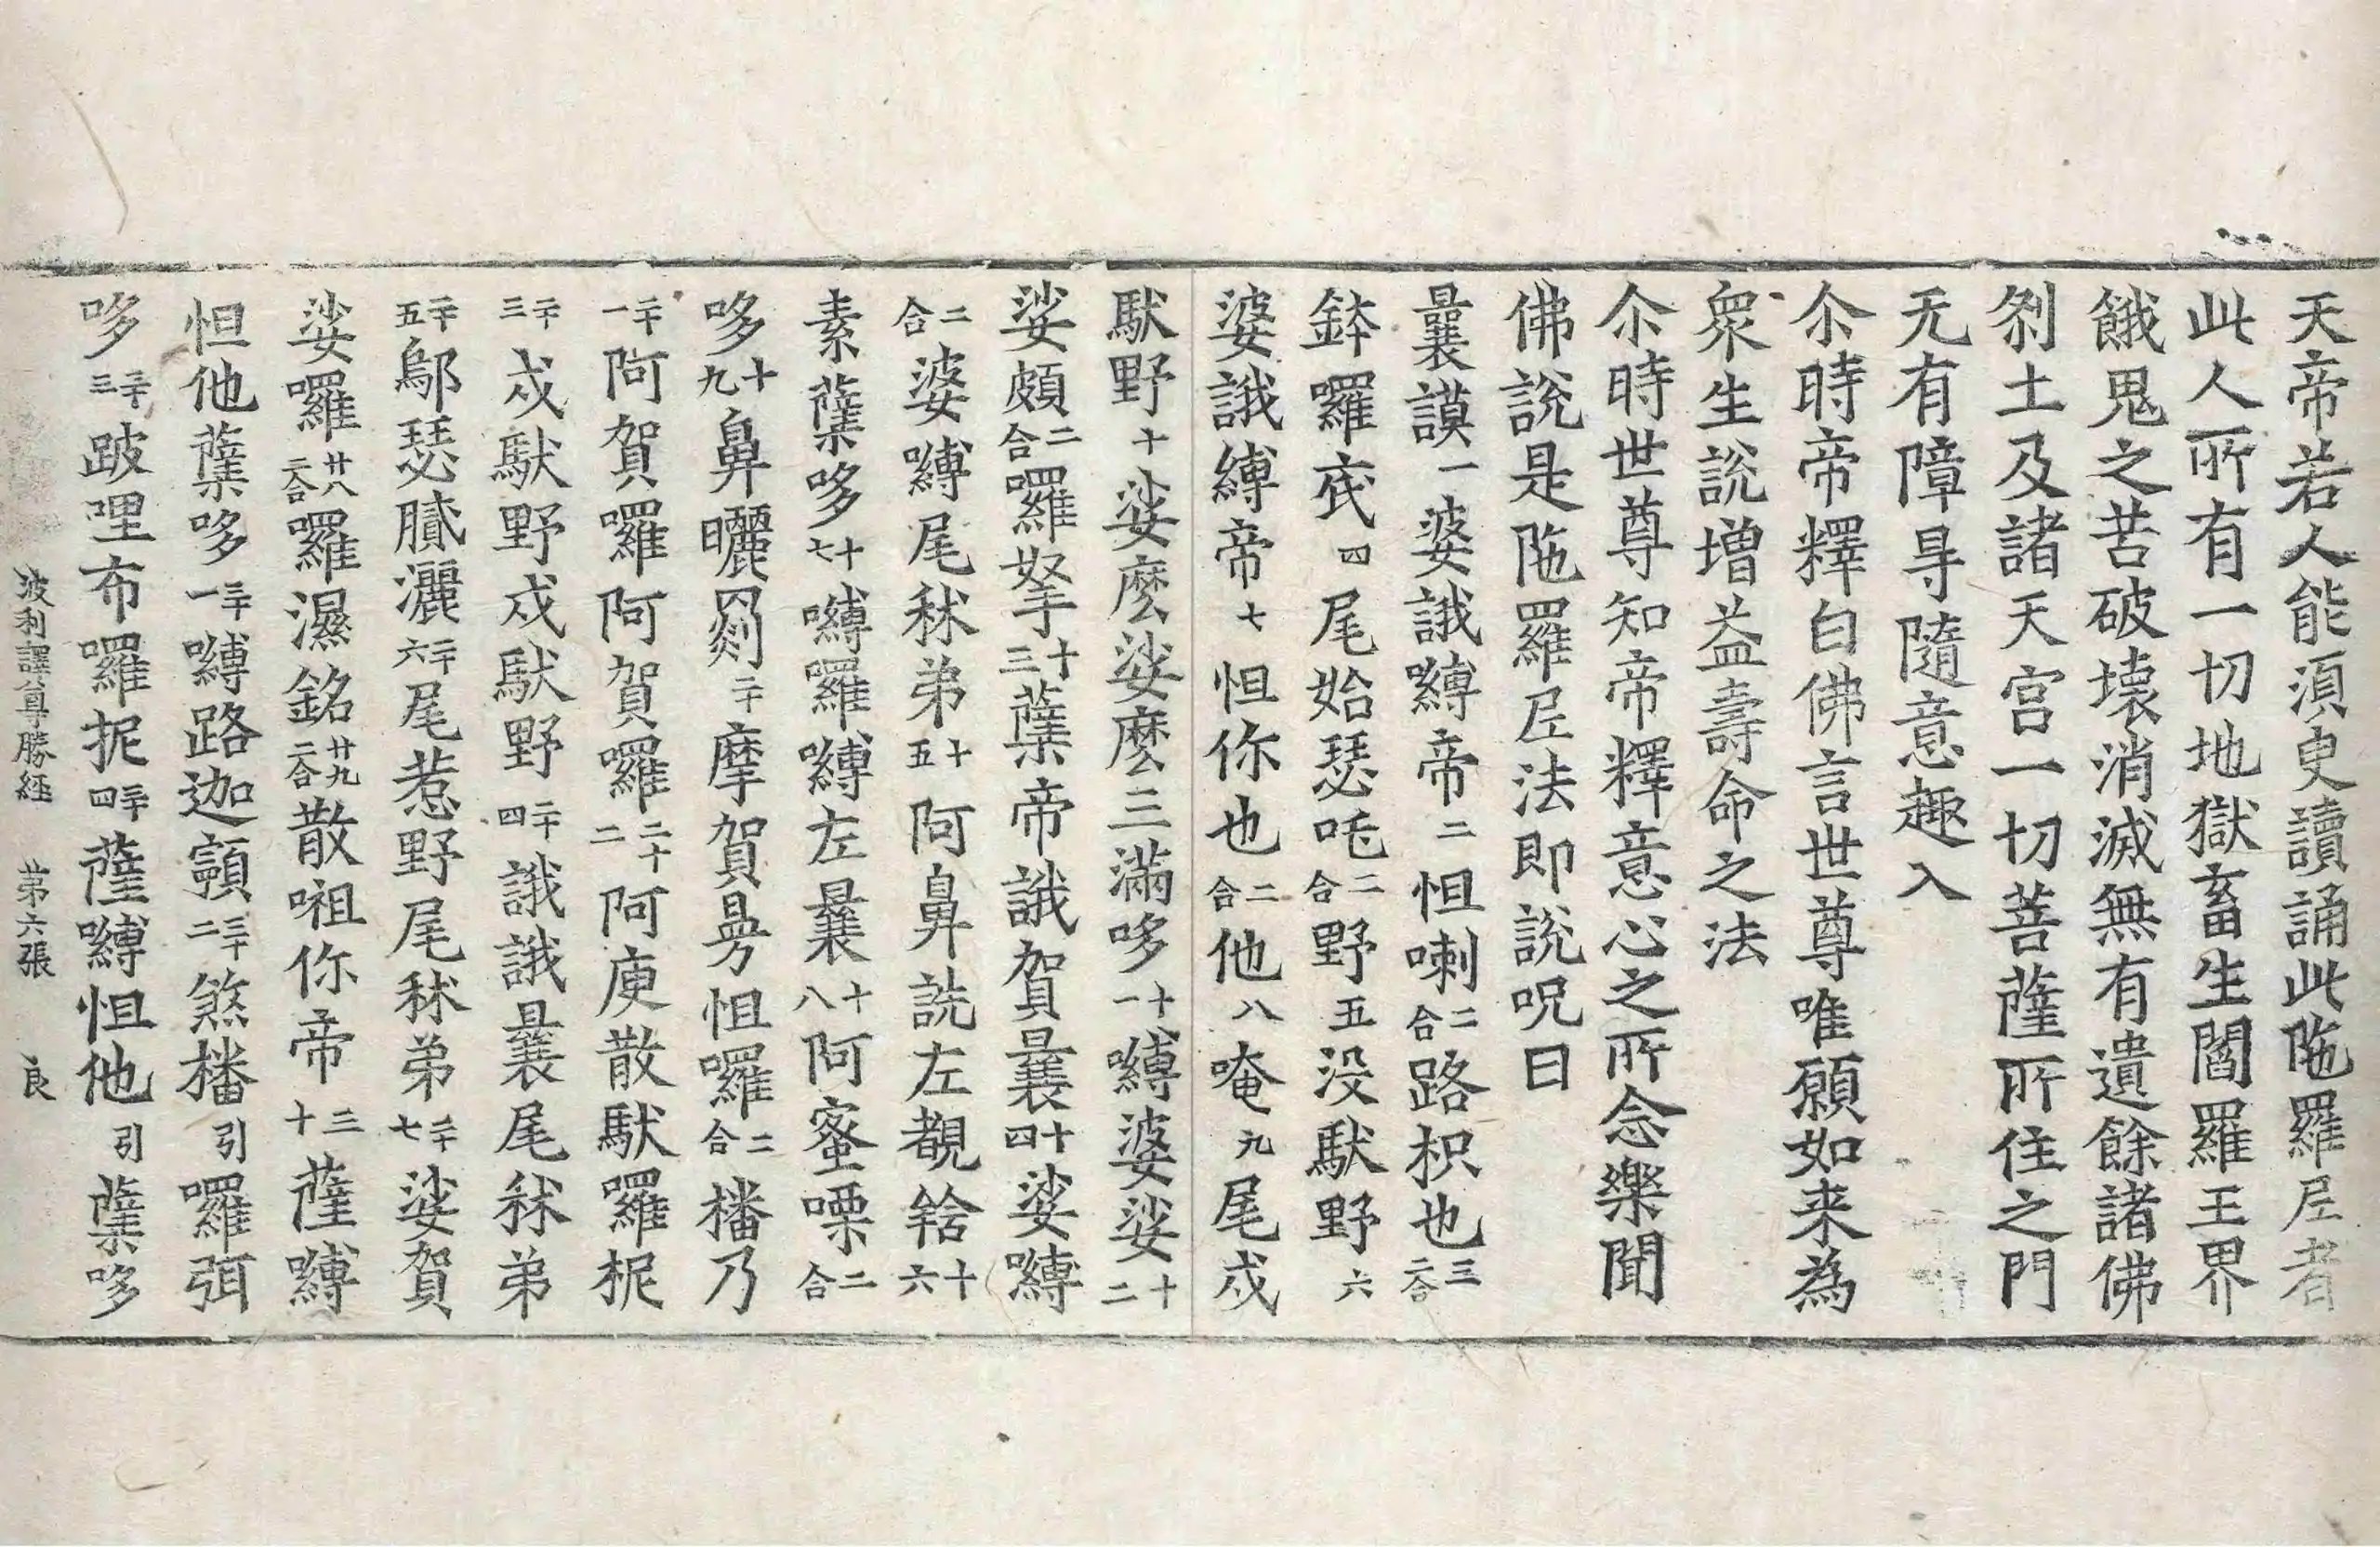 天帝若人能湏臾讀誦此陁羅尼者
此人所有一切地獄畜生閻羅王界
餓鬼之苦破壞消滅無有遺餘諸佛
刹土及諸天宫一切菩薩所住之門
无有障㝵隨意趣入
尒時帝釋白佛言世尊唯願如来為
衆生說增益壽命之法
尒時世尊知帝釋意心之所念樂聞
佛說是陁羅尼法即說呪曰
曩謨一婆誐嚩帝二怛喇二合路枳也三二合
鉢羅底四尾始瑟吒二合野五没馱野六
婆誐縛帝七怛你也二合他八唵九尾戍
馱野十娑麽娑麽三滿哆十一嚩婆娑十二
娑頗二合囉拏十三蘖帝誐賀曩十四娑嚩
二合婆嚩尾秫弟十五阿鼻詵左覩𤚥十六
素蘖哆十七嚩囉嚩左曩十八阿蜜㗚二合
哆十九鼻曬罽二十摩賀曼怛囉二合橎乃
二十一阿賀囉阿賀囉二十二阿庾散馱羅抳
二十三戍馱野戍馱野二十四誐誐曩尾秫弟
二十五鄔瑟膩灑二十六尾惹野尾秫弟二十七娑賀
娑囉廿八二合囉濕銘廿九二合散𠹌你帝三十薩嚩
怛他蘖哆三十一嚩路迦𩕳三十二煞橎引囉弭
哆三十三跛哩布囉抳三十四薩嚩怛他引蘖哆
波利譯尊勝経 苐六張 良